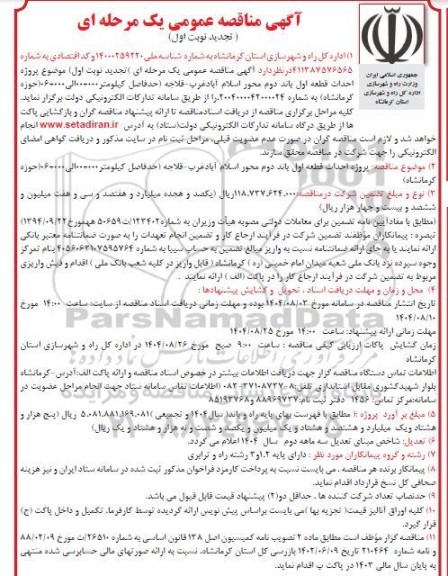 آگهی مناقصه عمومی یک مرحله ای
( تجدید نوبت اول)
جمهوری اسلامی ایران
وزارت راه و شهرسازی
اداره کل راه و شهرسازی
استان کرمانشاه
۱) اداره کل راه و شهرسازی استان کرمانشاه به شماره شناسه ملی ۱۴۰۰۰۲۵۹۲۲۰ و کد اقتصادی به شماره
۴۱۱۳۸۷۵۷۶۵۶۵ در نظر دارد آگهی مناقصه عمومی یک مرحله ای (تجدید نوبت اول) موضوع پروژه
احداث قطعه اول باند دوم محور اسلام آبادغرب-قلاجه (حدفاصل کیلومتر ۰۰۰+۰۰ الی ۰۰۰+۶) (حوزه
کرمانشاه) به شماره ۲۰۰۴۰۰۰۰۴۲۰۰۰۰۲۴ را از طریق سامانه تدارکات الکترونیکی دولت برگزار نماید.
کلیه مراحل برگزاری مناقصه از دریافت اسناد مناقصه تا ارائه پیشنهاد مناقصه گران و بازگشایی پاکت
ها از طریق درگاه سامانه تدارکات الکترونیکی دولت(ستاد) به آدرس www.setadiran.ir انجام
خواهد شد و لازم است مناقصه گران در صورت عدم عضویت قبلی، مراحل ثبت نام در سایت مذکور و دریافت گواهی امضای
الکترونیکی را جهت شرکت در مناقصه محقق سازند.
۲) موضوع مناقصه: پروژه احداث قطعه اول باند دوم محور اسلام آبادغرب-قلاجه (حدفاصل کیلومتر ۰۰۰+۰۰ الی ۰۰۰+۶) (حوزه
کرمانشاه)
۳) نوع و مبلغ تضمین شرکت در مناقصه: ۱۱۸.۷۳۷.۶۲۴.۰۰۰ ریال (یکصد و هجده میلیارد و هفتصد و سی و هفت میلیون و
ششصد و بیست و چهار هزار ریال)
(مطابق با مفاد) آیین نامه تضمین برای معاملات دولتی مصوبه هیأت وزیران به شماره ۱۲۳۴۰۲/ت۵۰۶۵۹هـ مورخ ۱۳۹۴/۰۹/۲۲)
تبصره : پیمانکاران موظفند تضمین شرکت در فرآیند ارجاع کار و تضمین انجام تعهدات را به صورت ضمانتنامه معتبر بانکی
ارائه نمایند یا به جای ارائه ضمانتنامه نسبت به واریز مبالغ تضمین به حساب سیبا به شماره ۴۰۵۶۰۶۳۱۰۷۵۹۵۷۶۴ بنام تمرکز
وجوه سپرده نزد بانک ملی شعبه میدان امام خمینی (ره) کرمانشاه ( قابل واریز در کلیه شعب بانک ملی ) اقدام و فیش واریزی
مربوط به تضمین شرکت در فرآیند ارجاع کار را در پاکت (الف) ارائه نمایند .
۴) محل و زمان و مهلت دریافت اسناد ، تحویل و گشایش پیشنهادها :
تاریخ انتشار مناقصه در سامانه مورخ ۱۴۰۴/۰۸/۰۳ بوده و مهلت زمانی دریافت اسناد مناقصه از سایت: ساعت ۱۴:۰۰ مورخ
۱۴۰۴/۰۸/۱۰
مهلت زمانی ارائه پیشنهاد: ساعت ۱۴:۰۰ مورخ ۱۴۰۴/۰۸/۲۵
زمان گشایش پاکات ارزیابی کیفی مناقصه : ساعت ۹:۰۰ صبح مورخ ۱۴۰۴/۰۸/۲۶ در اداره کل راه و شهرسازی استان
کرمانشاه
اطلاعات تماس دستگاه مناقصه گزار جهت دریافت اطلاعات بیشتر در خصوص اسناد مناقصه و ارائه پاکت الف: آدرس-کرمانشاه
سامانه: مرکز تماس ۱۴۵۶ دفتر ثبت نام ۸۸۹۶۹۷۳۷ و ۸۵۱۹۳۷۶۸
۵) مبلغ بر آورد پروژه :( مطابق با فهرست بهای پایه راه و باند) سال ۱۴۰۴ و تجمیعی ۵.۰۸۱.۸۸۱.۱۶۹.۰۸۱ ریال (پنج هزار و
هشتاد و یک میلیارد و هشتصد و هشتاد و یک میلیون و یکصد و شصت و نه هزار و هشتاد و یک ریال)
۶) تعدیل: شاخص مبنای تعدیل سه ماهه دوم سال ۱۴۰۴ اعلام می گردد.
۷) رشته و گروه پیمانکاران مورد نظر : دارای پایه ۱،۲و۳ رشته راه و ترابری
۸) پیمانکار برنده هر مناقصه ، می بایست نسبت به پرداخت کارمزد فراخوان مذکور ثبت شده در سامانه ستاد ایران و نیز هزینه
صحافی کل نسخ قرارداد اقدام نماید.
۹) حدنصاب تعداد شرکت کننده ها ، حداقل دو(۲) پیشنهاد قیمت قابل قبول می باشد.
۱۰) کلیه اوراق آنالیز قیمت( تجزیه بها )می بایست براساس پیش نویس ارائه گردیده توسط کارفرما، تکمیل و داخل پاکت (ج)
قرار گیرد.
۱۱) مناقصه گزار مؤظف است مطابق ماده ۲ تصویب نامه کمیسیون اصل ۱۳۸ قانون اساسی به شماره ۲۶۵۱۰/ت مورخ ۸۸/۰۲/۰۹
و نامه شماره ۲۱۰۴۶۴ تاریخ ۱۴۰۲/۰۶/۰۹ بازرسی کل استان کرمانشاه، نسبت به ارائه صورتهای مالی حسابرسی شده منتهی
به پایان سال مالی ۱۴۰۳ در پاکت ب اقدام نماید.
ParsNamadData